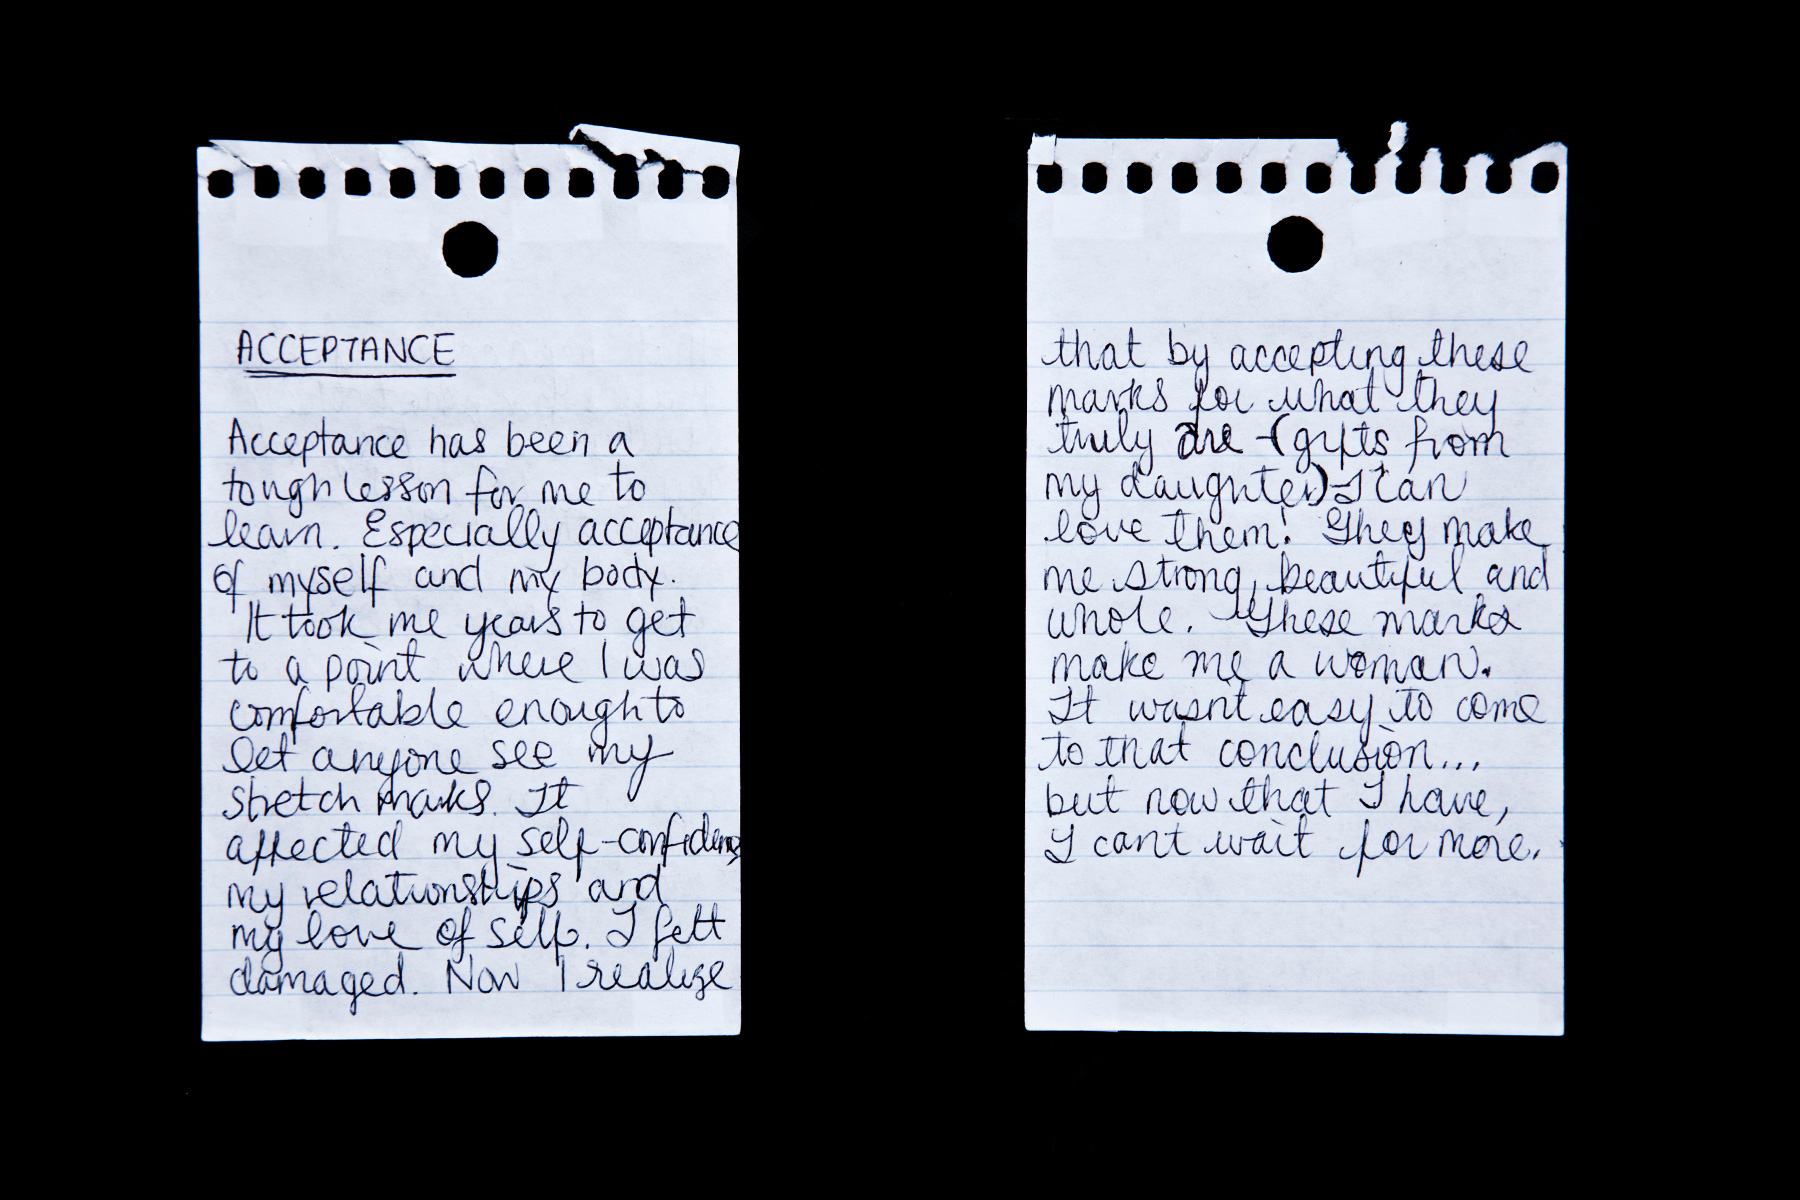 ACCEPTANCE
Acceptance has been a
tough lesson for me to
learn. Especially acceptance
of myself and my body.
It took me years to get
to a point where I was
comfortable enough to
let anyone see my
stretch marks. It
affected my self-confidence
my relationships and
my love of self. I felt
damaged. Now I realize
that by accepting these
marks for what they
truly are - (gifts from
my daughter) - I can
love them! They make
me strong, beautiful and
whole. These marks
make me a woman.
It wasn't easy to come
to that conclusion...
but now that I have,
I can't wait for more.